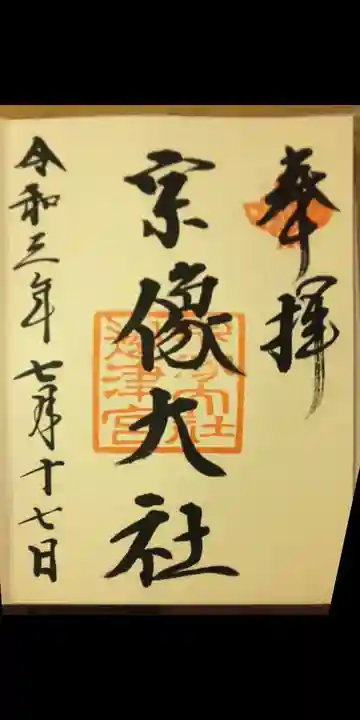 奉拝
宗像大社
辺津宮
令和三年七月十七日